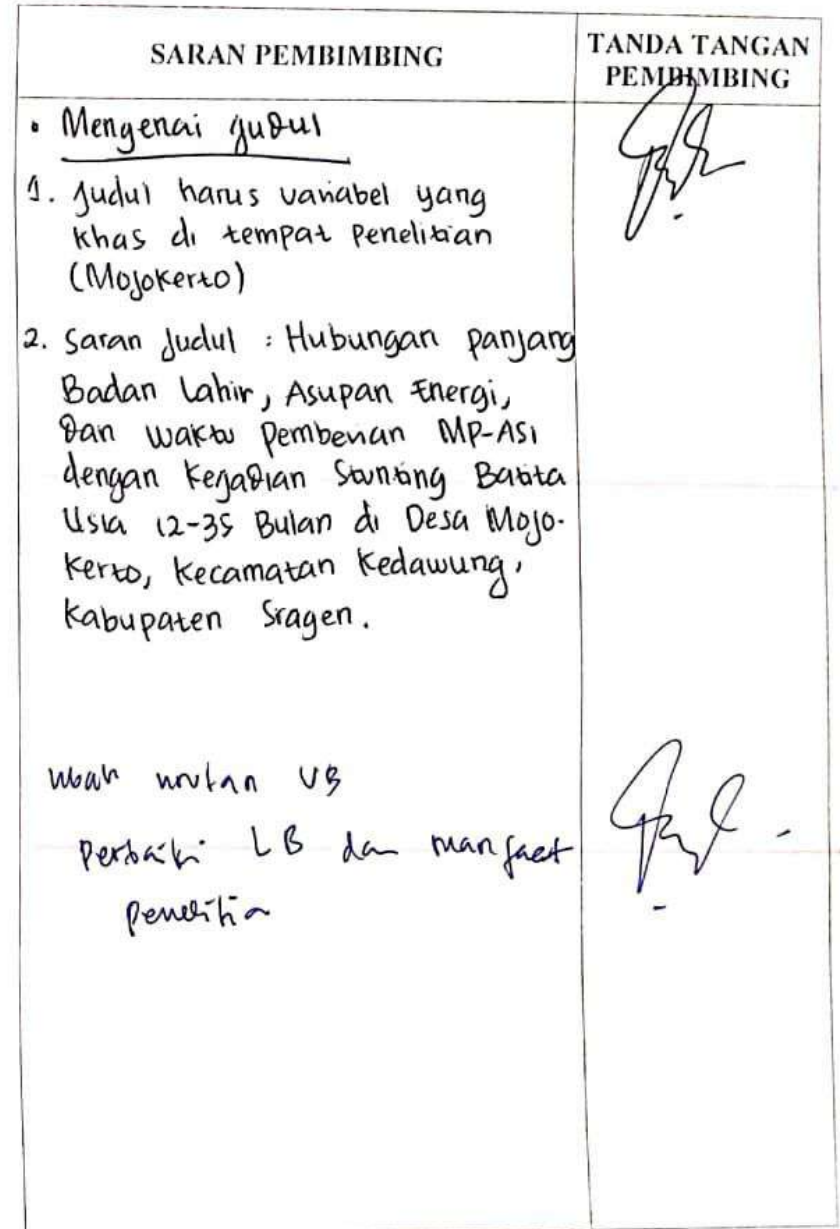 SARAN PEMBIMBING
TANDA TANGAN
PEMBIMBING
• Mengenai Judul
1. Judul harus variabel yang
khas di tempat Penelitian
(Mojokerto)
2. Saran Judul : Hubungan panjang
Badan Lahir, Asupan Energi,
Dan Waktu Pemberian MP-ASI
dengan Kejadian Stunting Batita
Usia 12-35 Bulan di Desa Mojo-
kerto, Kecamatan Kedawung,
Kabupaten Sragen.
ubah urutan VB
Perbaiki LB dan manfaat
penelitian